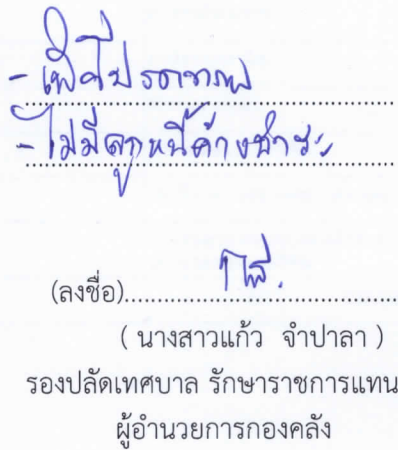 - เพื่อโปรดทราบ
- ไม่มีลูกหนี้ค้างชำระ
(ลงชื่อ)
( นางสาวแก้ว จำปาลา )
รองปลัดเทศบาล รักษาราชการแทน
ผู้อำนวยการกองคลัง